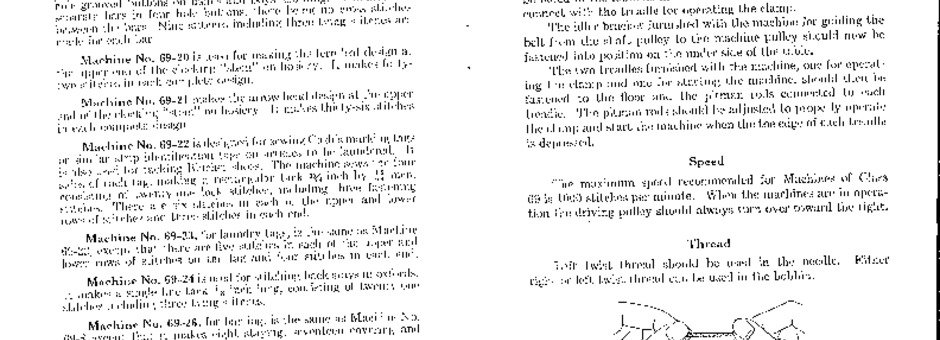 separate bars in four hole buttons, there being no cross stitches
between the bars. Nine stitches including three tying stitches are
made for each bar.
Machine No. 69-20 is used for making the fern leaf design at
the upper end of the clocking "stem" on hosiery. It makes forty-
two stitches in each complete design.
Machine No. 69-21 makes the arrow head design at the upper
end of the clocking "stem" on hosiery. It makes thirty-six stitches
in each complete design.
Machine No. 69-22 is designed for sewing Cash's marking tags
or similar strip identification tape on articles to be laundered. It
is also used for tacking shoes. The machine sews the four
sides of each tag, making a rectangular tack inch by inch,
consisting of twenty-one lock stitches, including three fastening
stitches. There are six stitches in each of the upper and lower
rows of stitches and three stitches in each end.
Machine No. 69-23, for laundry tags, is the same as Machine
69-22, except that there are five stitches in each of the upper and
lower rows of stitches on the tag and four stitches in each end.
Machine No. 69-24 is used for stitching back stays in oxfords.
It makes a single line tack inch long, consisting of twenty-one
stitches including three tying stitches.
Machine No. 69-26, for is the same as Machine No.
except that it makes eight staying, seventeen covering, and
connect with the treadle for operating the clamp.
The idler bracket furnished with the machine for guiding the
belt from the shaft pulley to the machine pulley should now be
fastened into position on the under side of the table.
The two treadles furnished with the machine, one for operat-
ing the clamp and one for starting the machine, should then be
fastened to the floor and the pitman rods connected to each
treadle. The pitman rods should be adjusted to properly operate
the clamp and start the machine when the toe edge of each treadle
is depressed.
Speed
The maximum speed recommended for Machines of Class
69 is stitches per minute. When the machines are in opera-
tion the driving pulley should always turn over toward the right.
Thread
Left twist thread should be used in the needle. Either
right or left twist thread can be used in the bobbin.